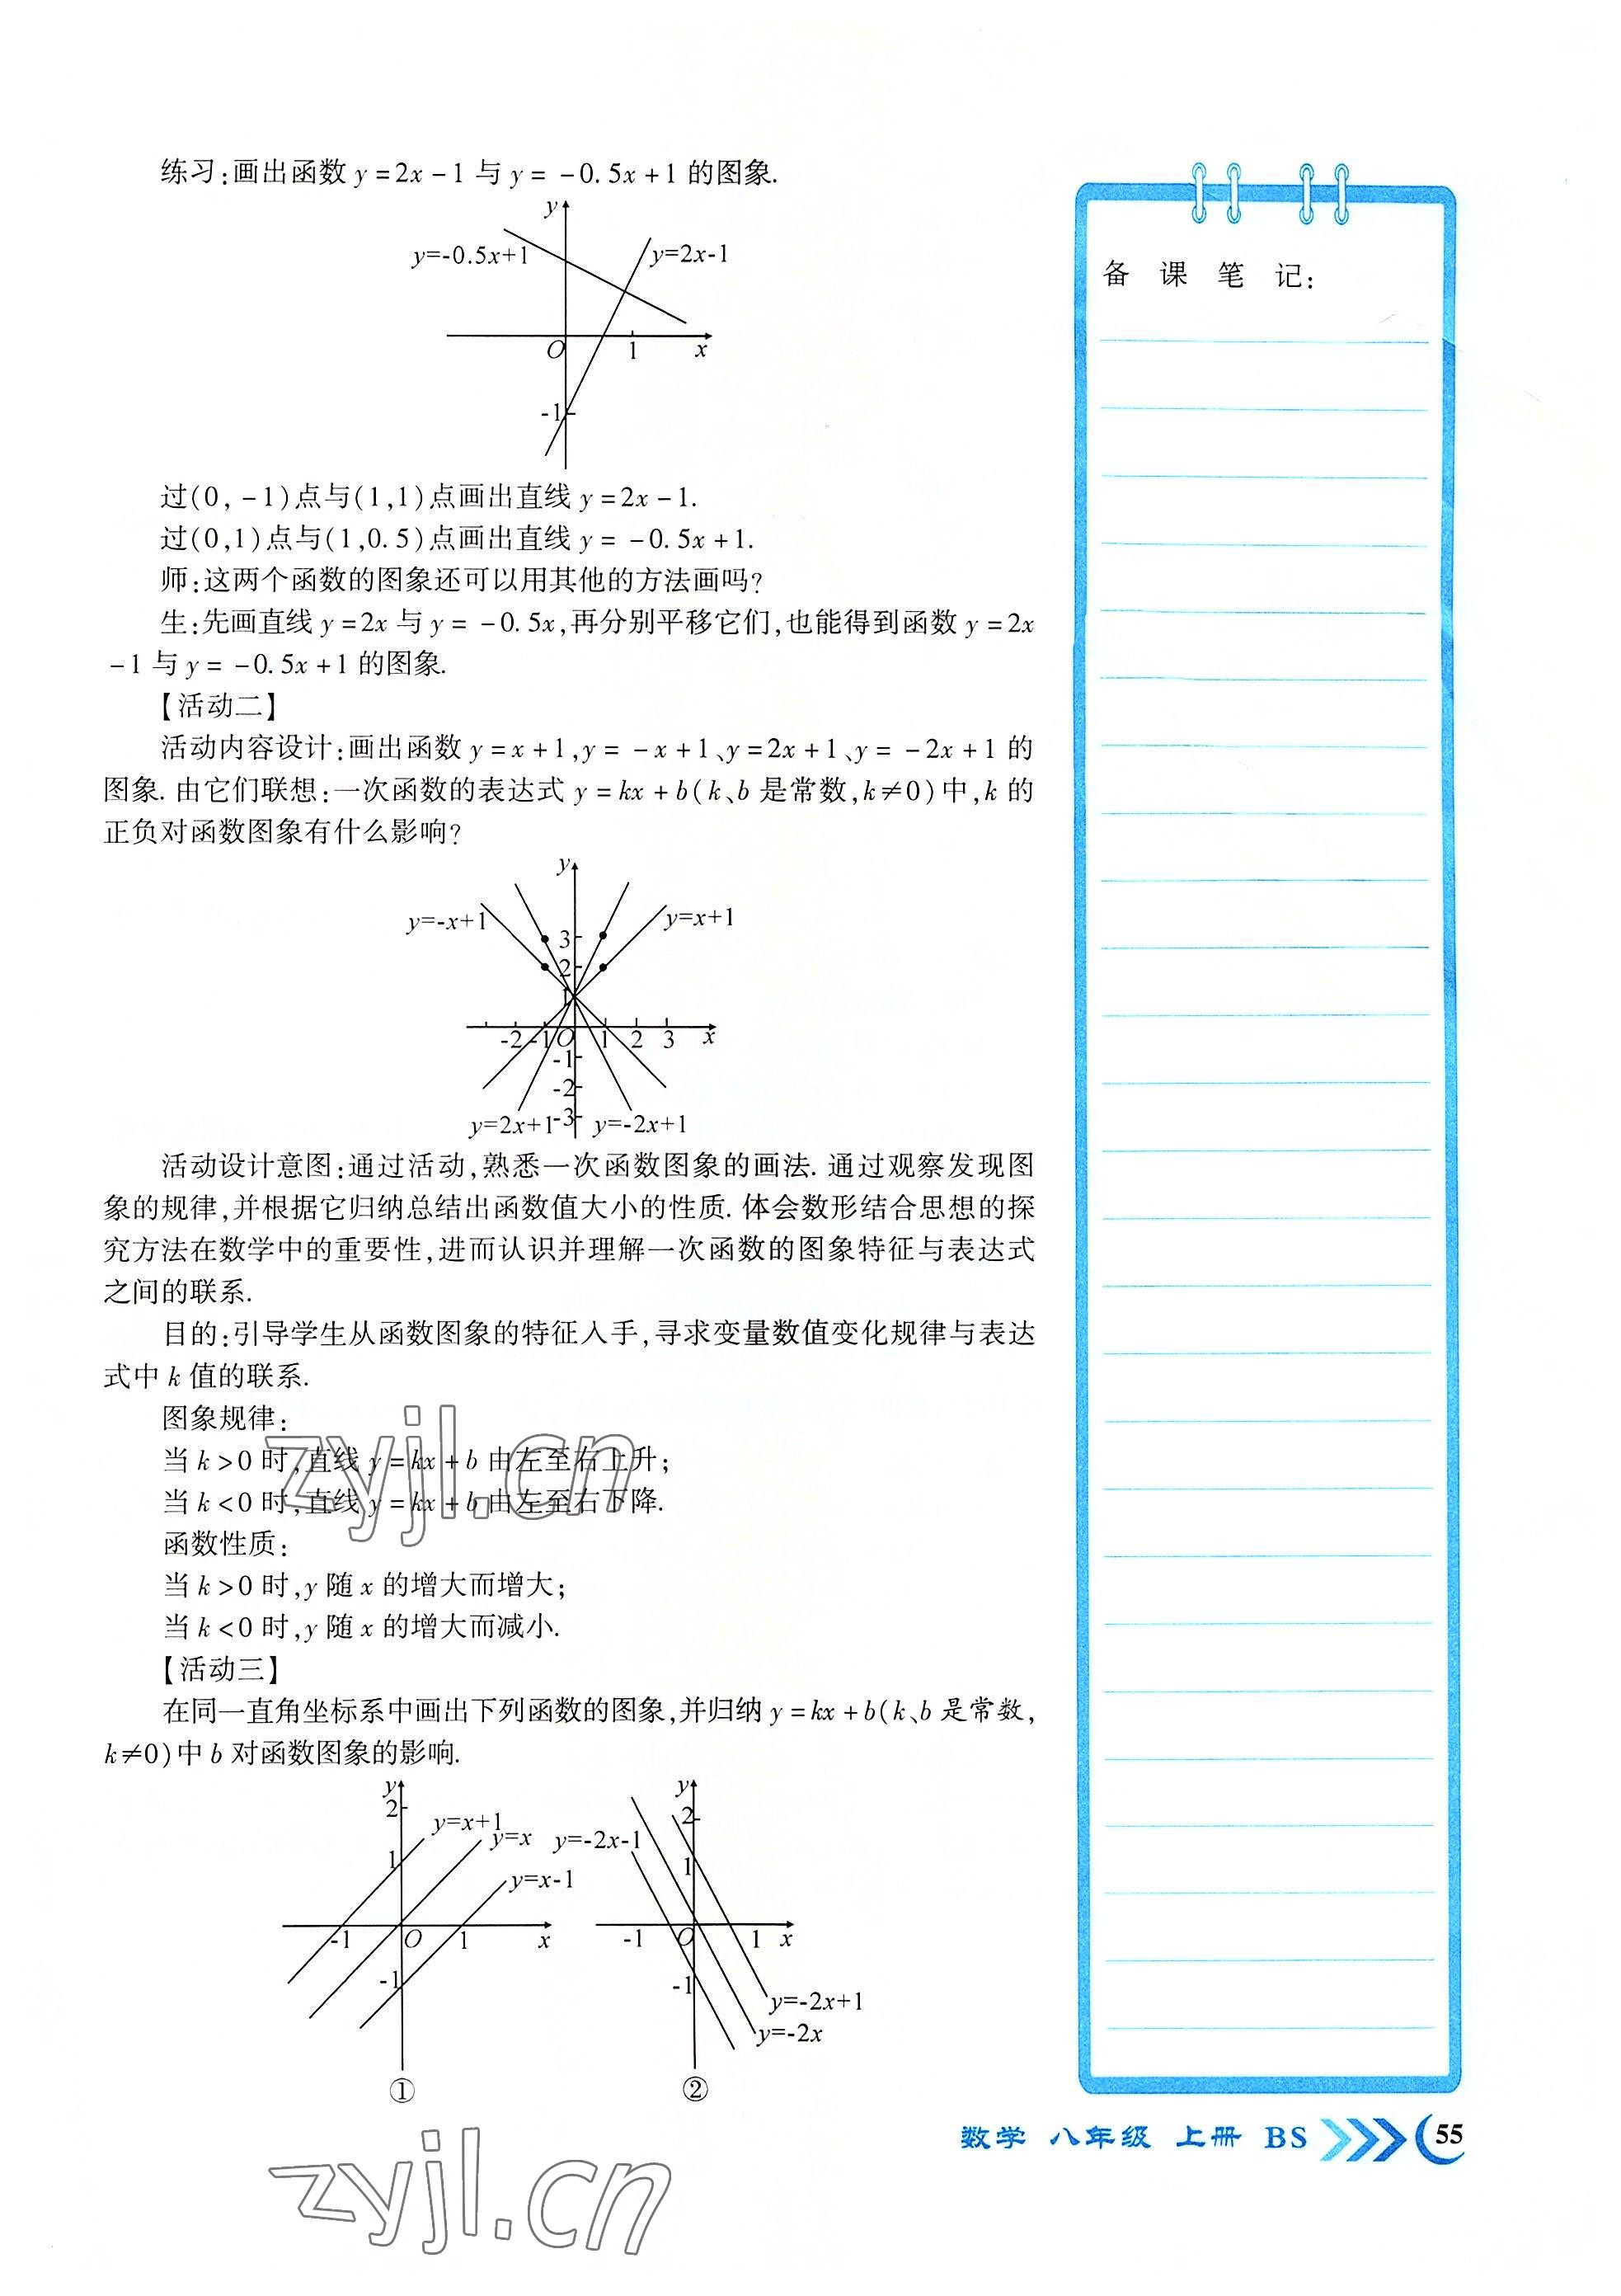 练习:画出函数 y=2x-1 与 y=-0.5x+1 的图象.
y
y=-0.5x+1
y=2x-1
O
1
x
-1
过(0,-1)点与(1,1)点画出直线 y=2x-1.
过(0,1)点与(1,0.5)点画出直线 y=-0.5x+1.
师:这两个函数的图象还可以用其他的方法画吗?
生:先画直线 y=2x 与 y=-0.5x,再分别平移它们,也能得到函数 y=2x
-1 与 y=-0.5x+1 的图象.
【活动二】
活动内容设计:画出函数 y=x+1,y=-x+1、y=2x+1、y=-2x+1 的
图象. 由它们联想:一次函数的表达式 y=kx+b(k、b 是常数,k≠0)中,k 的
正负对函数图象有什么影响?
y
y=-x+1
y=x+1
3
2
1
-2 -1 O 1 2 3 x
-1
-2
-3
y=2x+1
y=-2x+1
活动设计意图:通过活动,熟悉一次函数图象的画法. 通过观察发现图
象的规律,并根据它归纳总结出函数值大小的性质. 体会数形结合思想的探
究方法在数学中的重要性,进而认识并理解一次函数的图象特征与表达式
之间的联系.
目的:引导学生从函数图象的特征入手,寻求变量数值变化规律与表达
式中 k 值的联系.
图象规律:
当 k>0 时,直线 y=kx+b 由左至右上升;
当 k<0 时,直线 y=kx+b 由左至右下降.
zyjl.cn
函数性质:
当 k>0 时,y 随 x 的增大而增大;
当 k<0 时,y 随 x 的增大而减小.
【活动三】
在同一直角坐标系中画出下列函数的图象,并归纳 y=kx+b(k、b 是常数,
k≠0)中 b 对函数图象的影响.
y
2
y=x+1
y=x
1
y=x-1
-1 O 1 x
-1
①
y
2
y=-2x-1
1
-1 O 1 x
-1
y=-2x+1
y=-2x
②
备课笔记:
数学 八年级 上册 BS
55
zyjl.cn